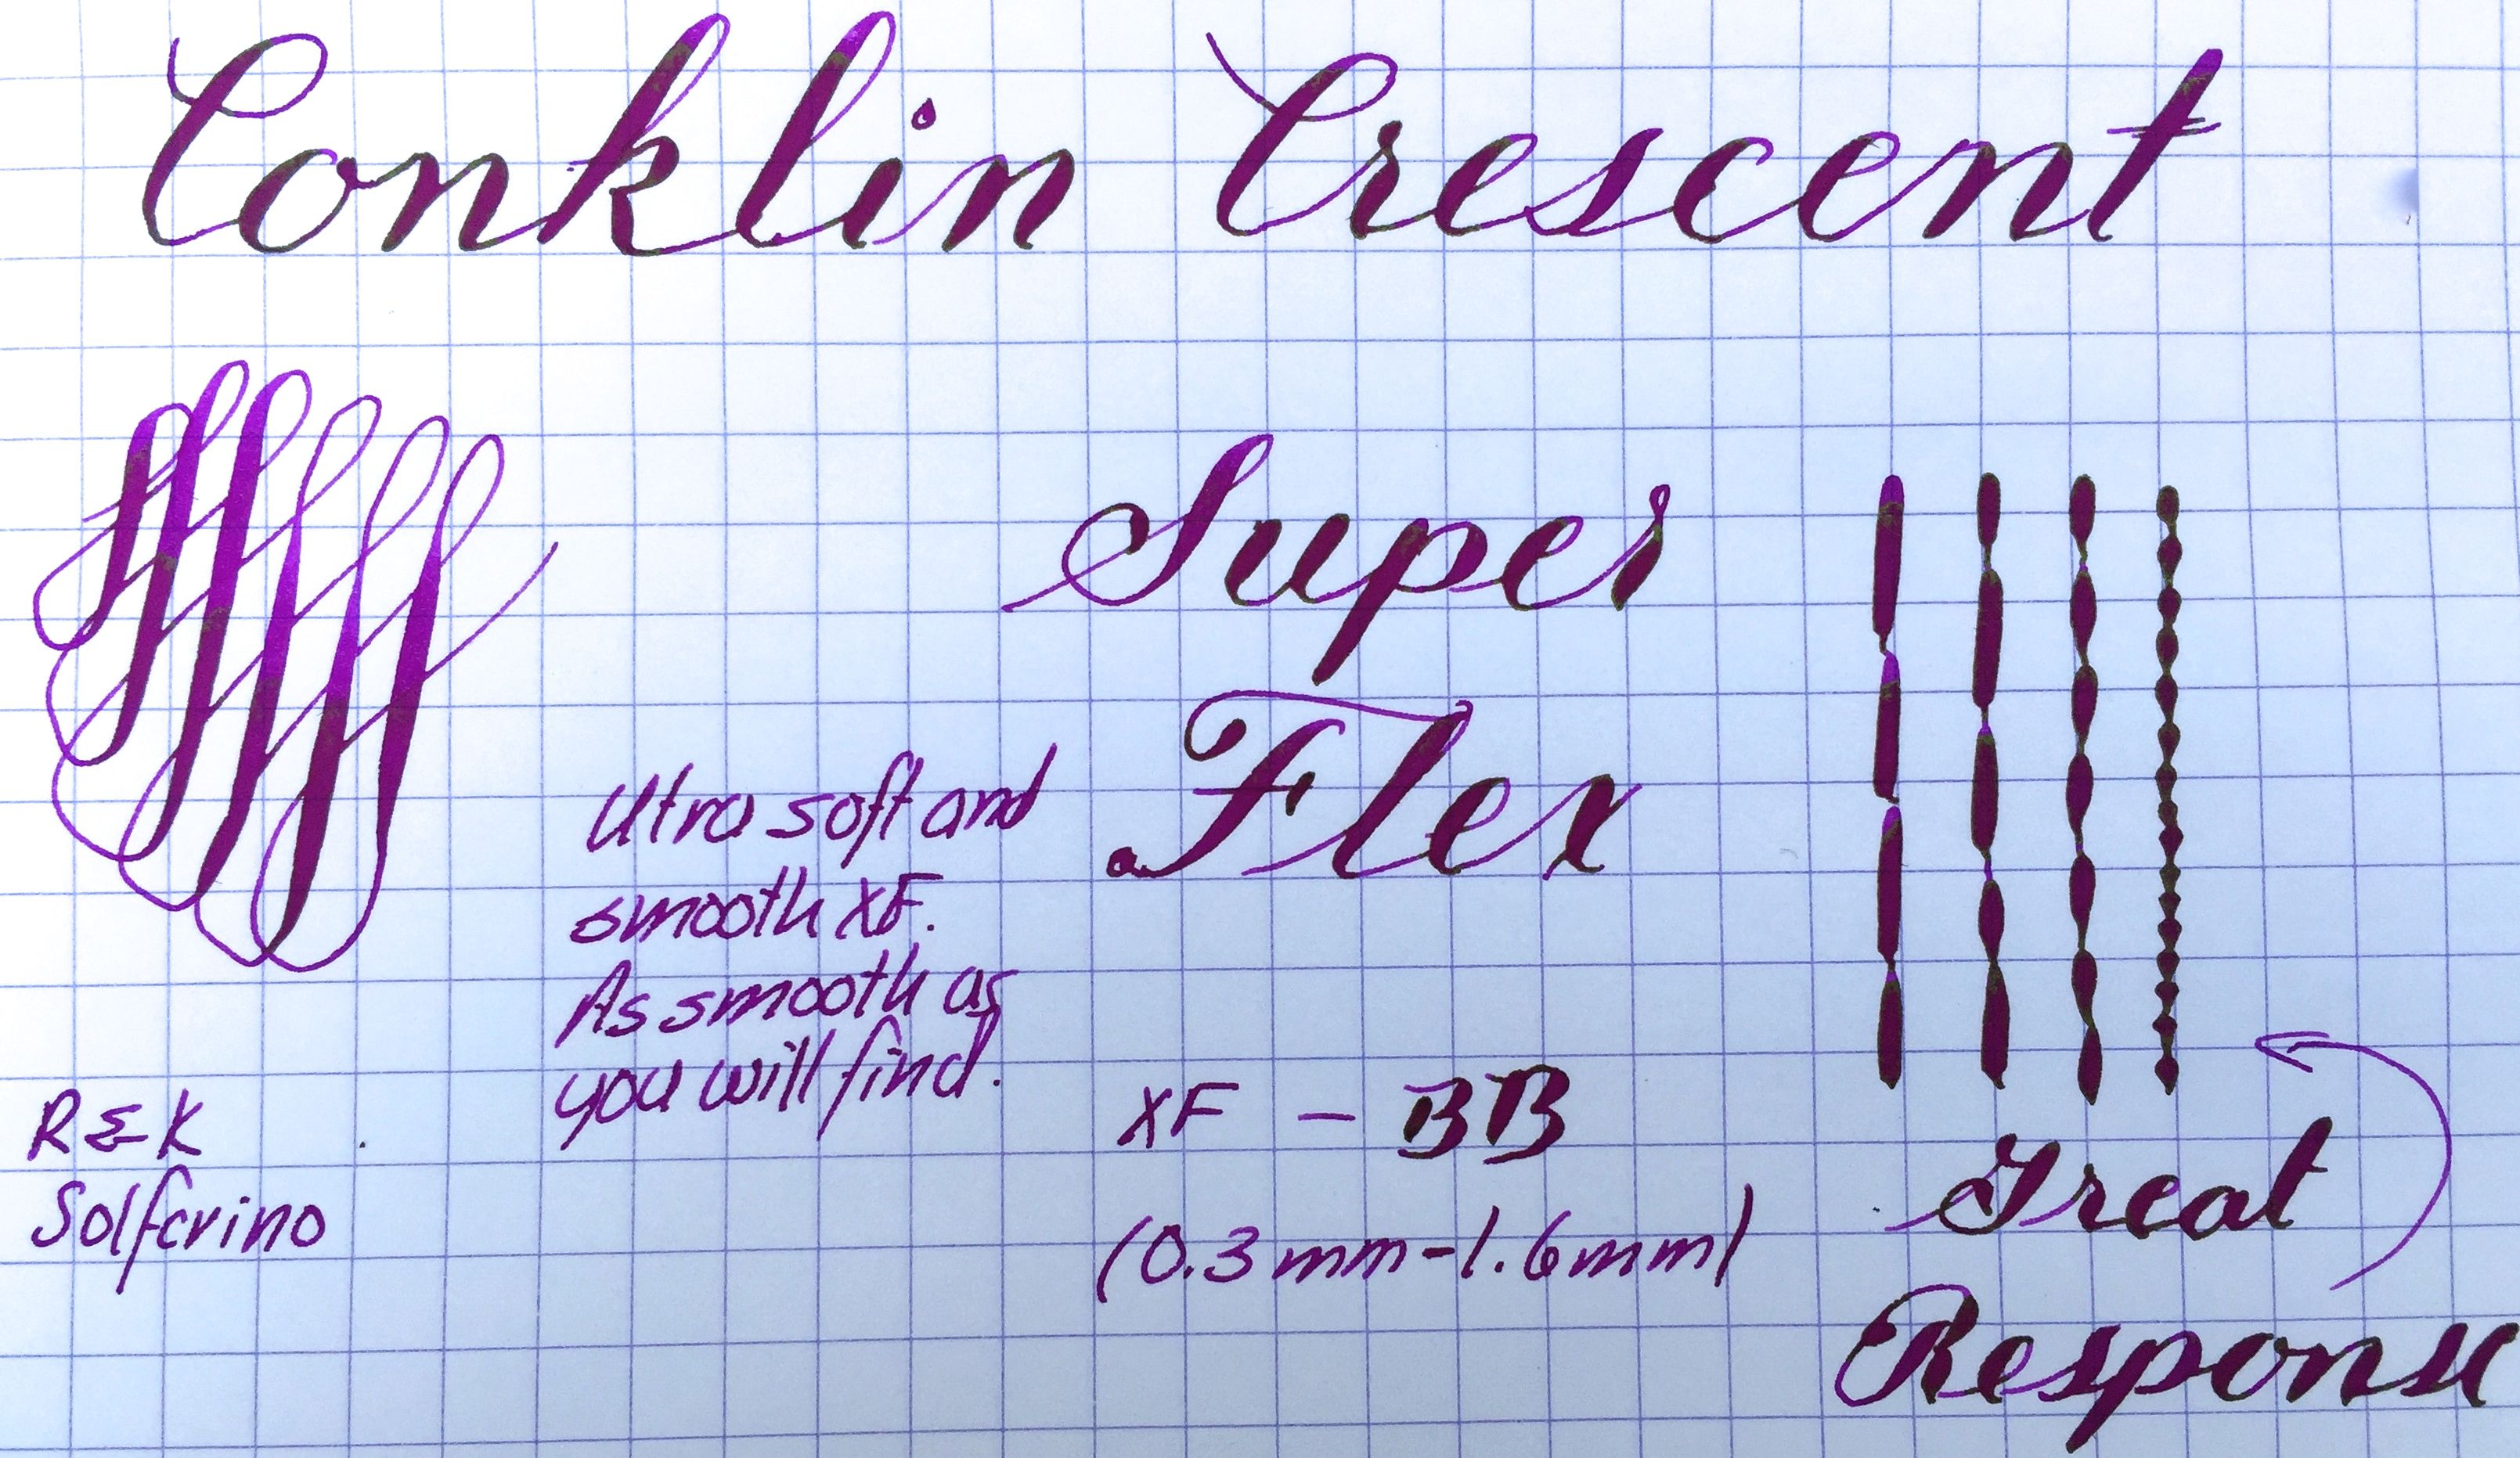 Conklin Crescent
Super
Flex
Utra soft and
smooth XF.
As smooth as
you will find.
R & K
Solferino
XF – BB
(0.3mm-1.6mm)
Great
Response